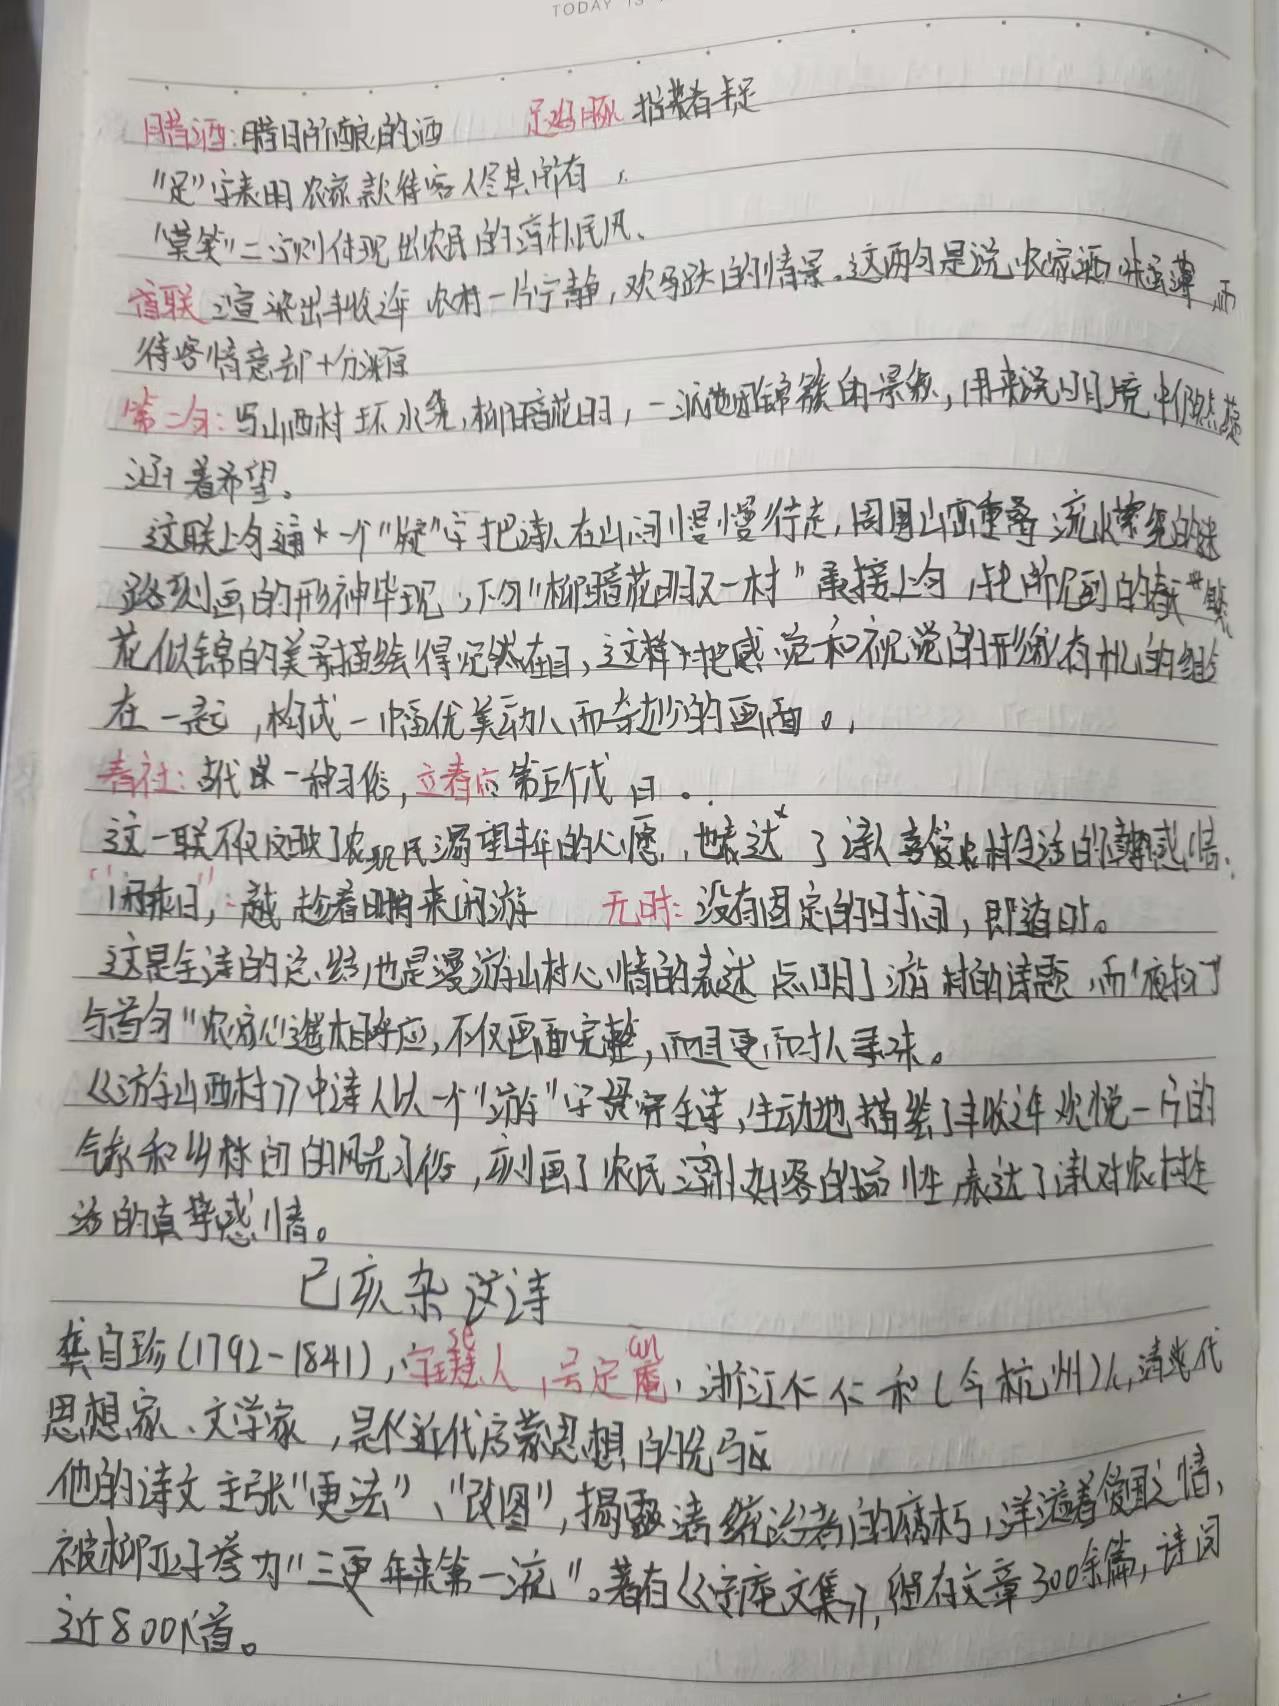 TODAY IS
腊酒:腊日所酿的酒 足鸡豚 指菜肴丰足
“足”字表明农家款待客人尽其所有,
“莫笑”二字则体现出农民的淳朴民风、
首联 渲染出丰收之年 农村一片宁静,欢乐跃的情景。这两句是说农家酒味虽薄,而
待客情意却十分深厚
第二句:写山西村环水绕,柳暗花明,一派花团锦簇的景象,用来说明困境中仍然蕴
涵着希望。
这联上句通 一个“疑”字把诗人在山间慢慢行走,周围山峦重叠 流水萦绕的迷
路刻画的形神毕现,下句“柳暗花明又一村”承接上句,把所见到的春天 繁
花似锦的美景描绘得宛然在目,这样 把感觉和视觉的形象有机的组合
在一起,构成一幅优美动人而奇妙的画面。
春社:古代 一种习俗,立春后第五个戊日。
这一联不仅反映了农 民渴望丰年的心愿,也表达了诗人喜爱农村生活的 感情,
“闲乘月”:趁着月明来闲游 无时:没有固定的时间,即随时。
这是全诗的总结,也是漫游山村心情的表达 点明了游村的诗题,而“夜扣门”
与首句“农家”遥相呼应,不仅画面完整,而且更耐人寻味。
《游山西村》中诗人以一个“游”字贯穿全诗,生动地描绘了丰收之年欢悦一片的
气象和乡村间的风光习俗,刻画了农民淳朴好客的品性,表达了诗人对农村生
活的真挚感情。
己亥杂 诗
龚自珍(1792-1841),字璱人,号定庵,浙江仁 仁和(今杭州)人,清 代
sè ān
思想家、文学家,是 近代启蒙思想的先驱
他的诗文主张“更法”、“改图”,揭露清统治者的腐朽,洋溢着爱国之情、
被柳亚子誉为“三百年来第一流”。著有《定庵文集》,留存文章300余篇,诗词
近800首。